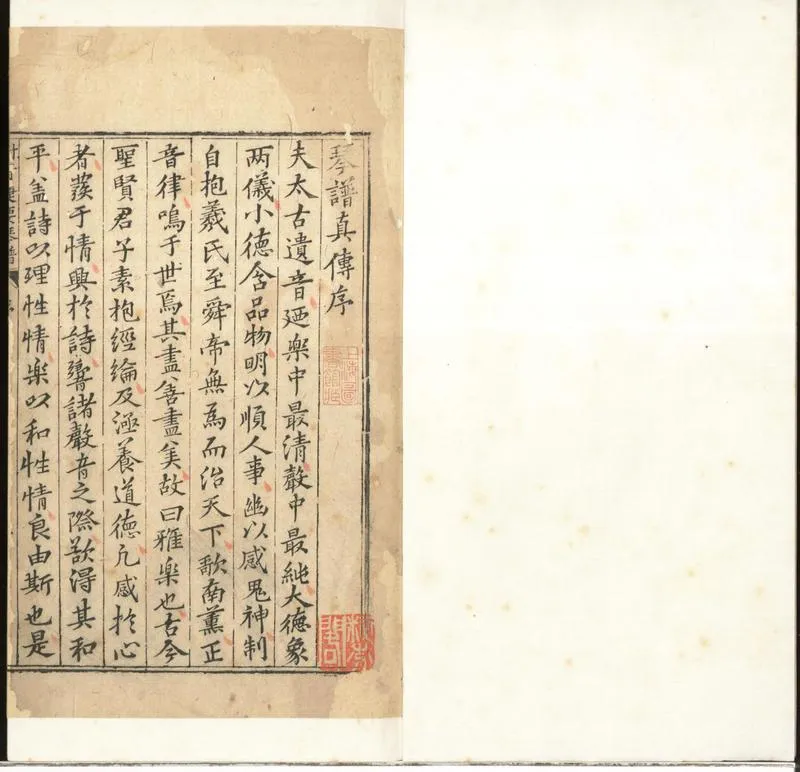 琴譜真傳序
上海圖書館藏
夫太古遺音廼楽中最清聲中最純大德象
两儀小德含品物明以順人事幽以感鬼神制
自抱羲氏至舜帝無為而治天下歌南薰正
音律鳴于世焉其盡善盡美故曰雅楽也古今
聖賢君子素抱經綸及涵養道德凢感扵心
者蕟于情興扵詩響諸聲音之際歌得其和
平盖詩以理性情楽以和性情良由斯也是